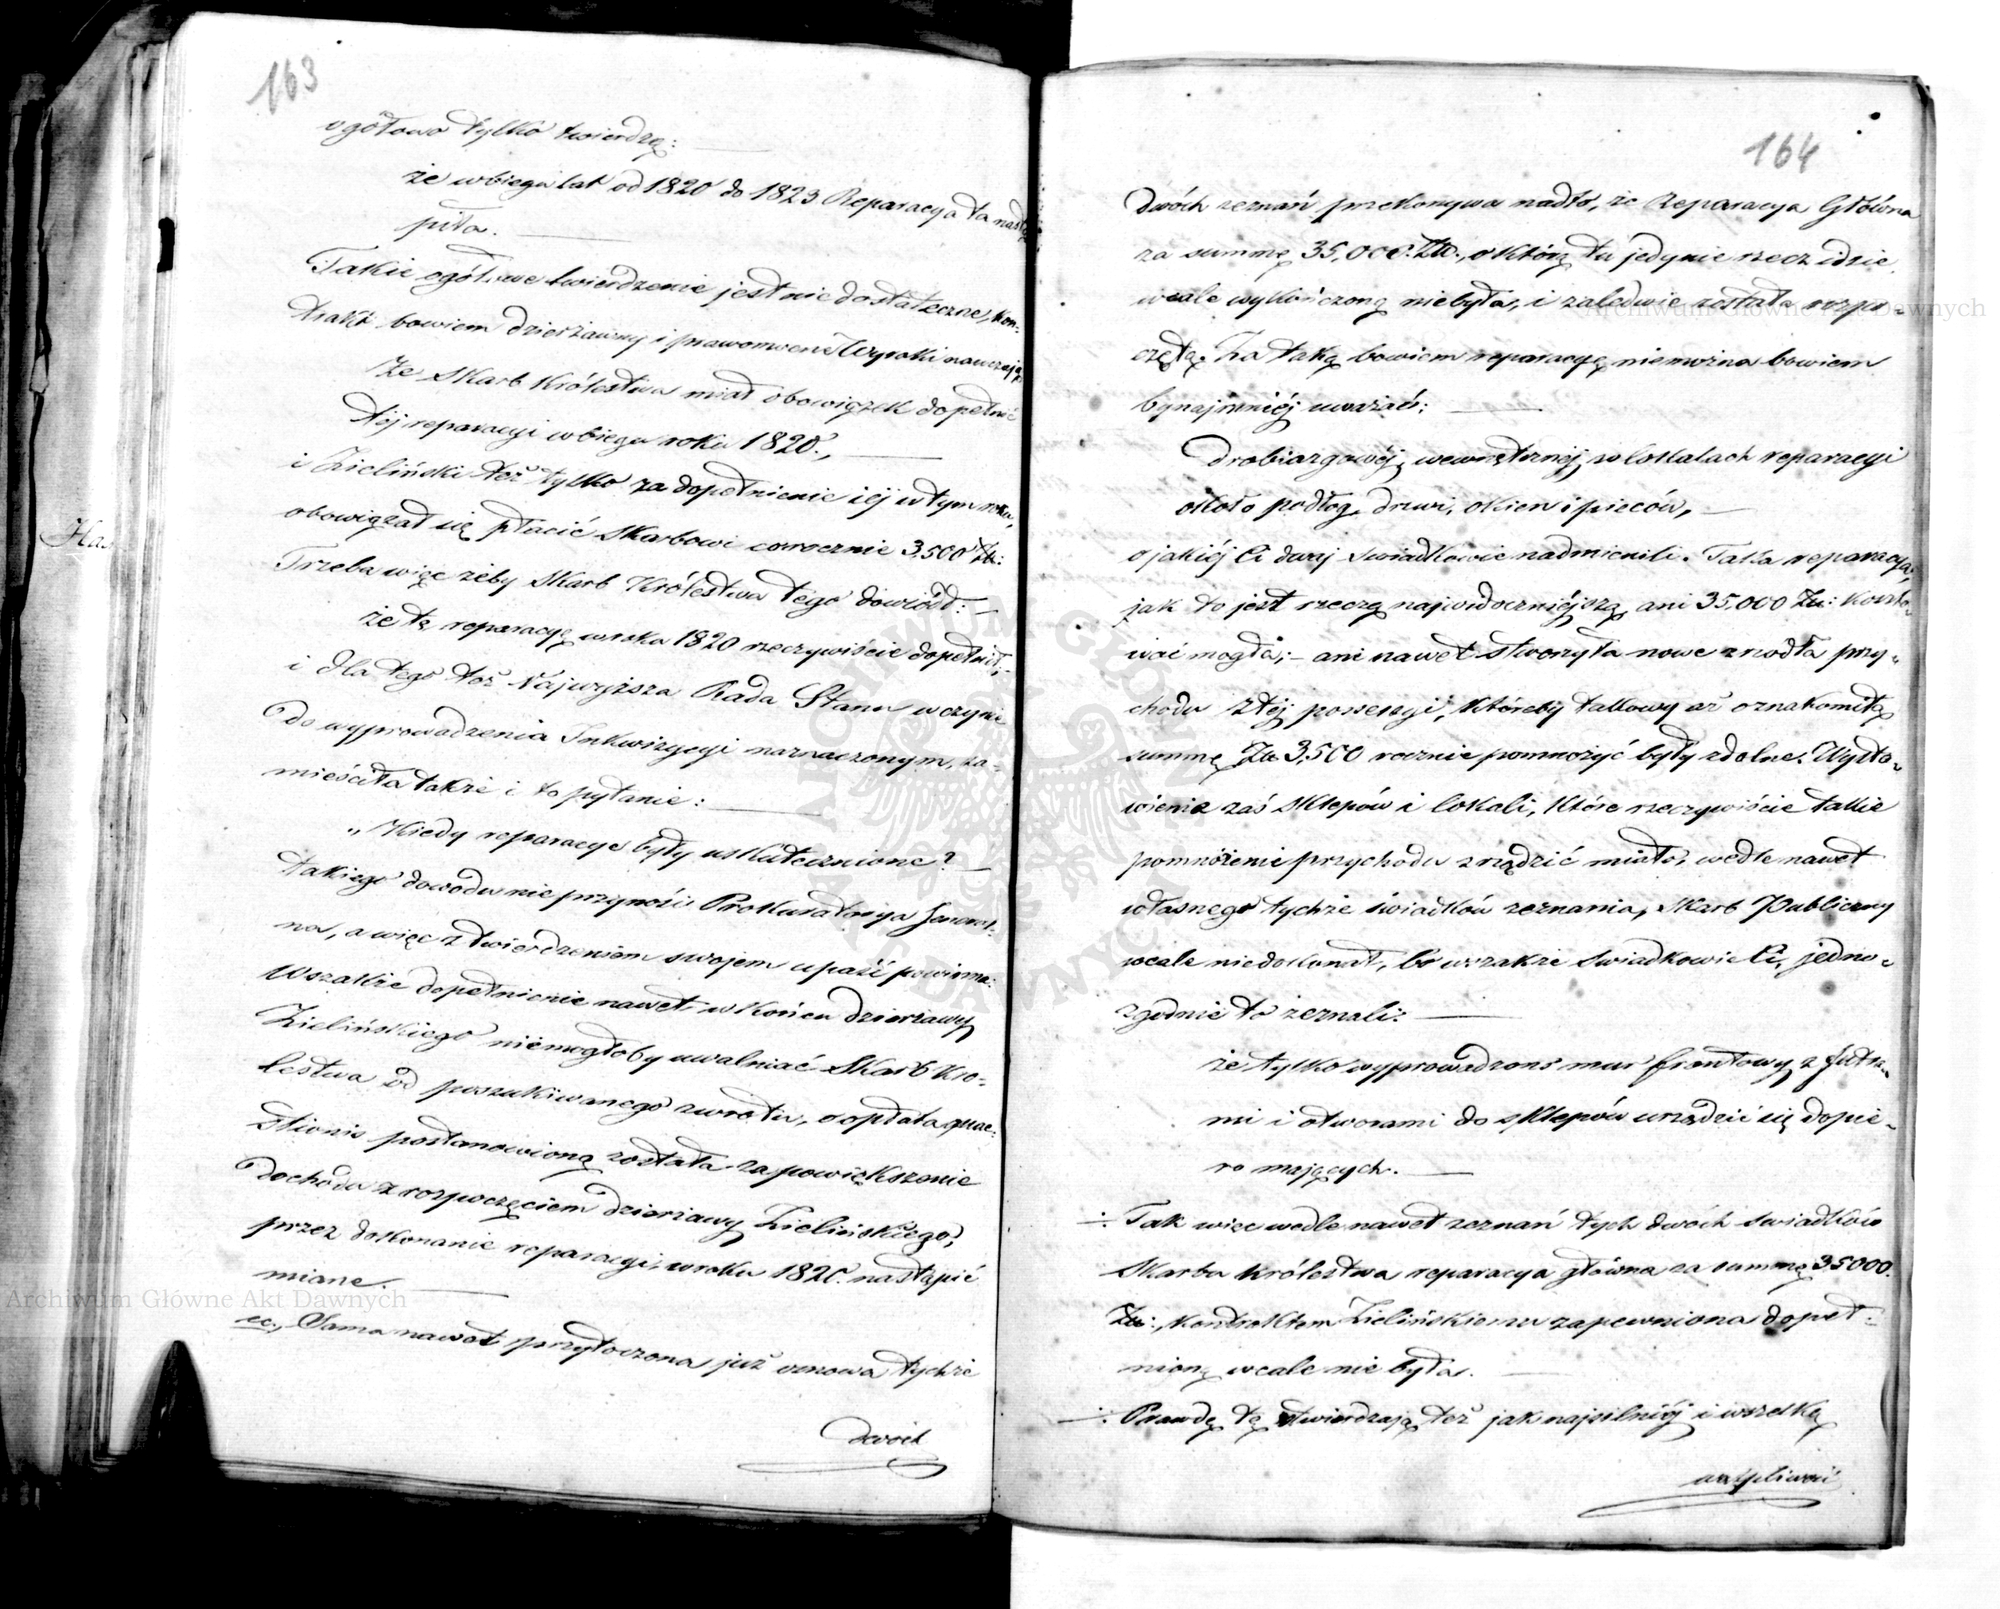 163
ogółowo tylko twierdzą:
że w biegu lat od 1820 do 1823 Reparacya ta nastą
piła.
Takie ogółowe twierdzenie jest niedostateczne, kon-
trakt bowiem dzierżawny i prawomocne Wyroki nauczają
że Skarb Królestwa miał obowiązek dopełnić
téj reparacyi w biegu roku 1820.,
i Zieliński też tylko za dopełnienie iéj w tym roku,
obowiązał się płacić Skarbowi corocznie 3,500 Zł:
Trzeba więc żeby Skarb Królestwa tego dowiódł: —
że tę reparacyę w roku 1820 rzeczywiście dopełnił,
i dla tego też Najwyższa Rada Stanu w czynie
do wyprowadzenia Inkwizycyi naznaczonym, za-
mieściła także i to pytanie:
„Kiedy reparacye były uskutecznione?
takiego dowodu nie przynosi Prokuratorya Jeneral-
na, a więc z twierdzeniem swojem upaść powinna:
Wszakże dopełnienie nawet w końcu dzierżawy
Zielińskiego niemogłoby uwalniać Skarb Kró-
lestwa od poszukiwanego zwrotu, o opłata quae-
stionis postanowioną została za powiększenie
dochodu z rozpoczęciem dzierżawy Zielińskiego,
przez dokonanie reparacyi, w roku 1820. nastąpić
miane.
Sama nawet przytoczona już osnowa tychże
dwóch
164
dwóch zeznań przekonywa nadto, że Reparacya Główna
za summę 35,000. Zł., o którą tu jedynie rzecz idzie,
wcale wykończoną niebyła, i zaledwie została rozpo-
czętą. Za taką bowiem reparacyę niemożna bowiem
bynajmniéj uważać;
drobiazgowéj, wewnętrznéj, w lokalach reparacyi
około podłog, drzwi, okien i pieców,
o jakiéj Ci dwaj świadkowie nadmienili. Taka reparacya,
jak to jest rzeczą najwidoczniéjszą, ani 35,000 Zł: koszto-
wać mogła; — ani nawet stworzyła nowe źrodła przy-
chodu z téj possessyi, któreby takowy aż o znakomitą
summę Zł 3,500 rocznie pomnożyć były zdolne. Wysta-
wienia zaś sklepów i lokali, które rzeczywiście takie
pomnożenie przychodu zrządzić miało, wedle nawet
własnego tychże świadków zeznania, Skarb Publiczny
wcale niedokonał, bo wszakże świadkowie Ci, jedno-
zgodnie to zeznali:
że tylko wyprowadzono mur frontowy z futra-
mi i otworami do sklepów urządzić się dopie-
ro mających.
÷ Tak więc wedle nawet zeznań tych dwóch świadków
Skarbu Królestwa reparacya główna za summę 35000.
Zł:, kontraktem Zielińskiemu zapewniona dopeł-
nioną wcale nie była.
÷ Prawdę tę stwierdzają też jak najsilniéj i wszelką
wątpliwość
Archiwum Główne Akt Dawnych
Archiwum Główne Akt Dawnych